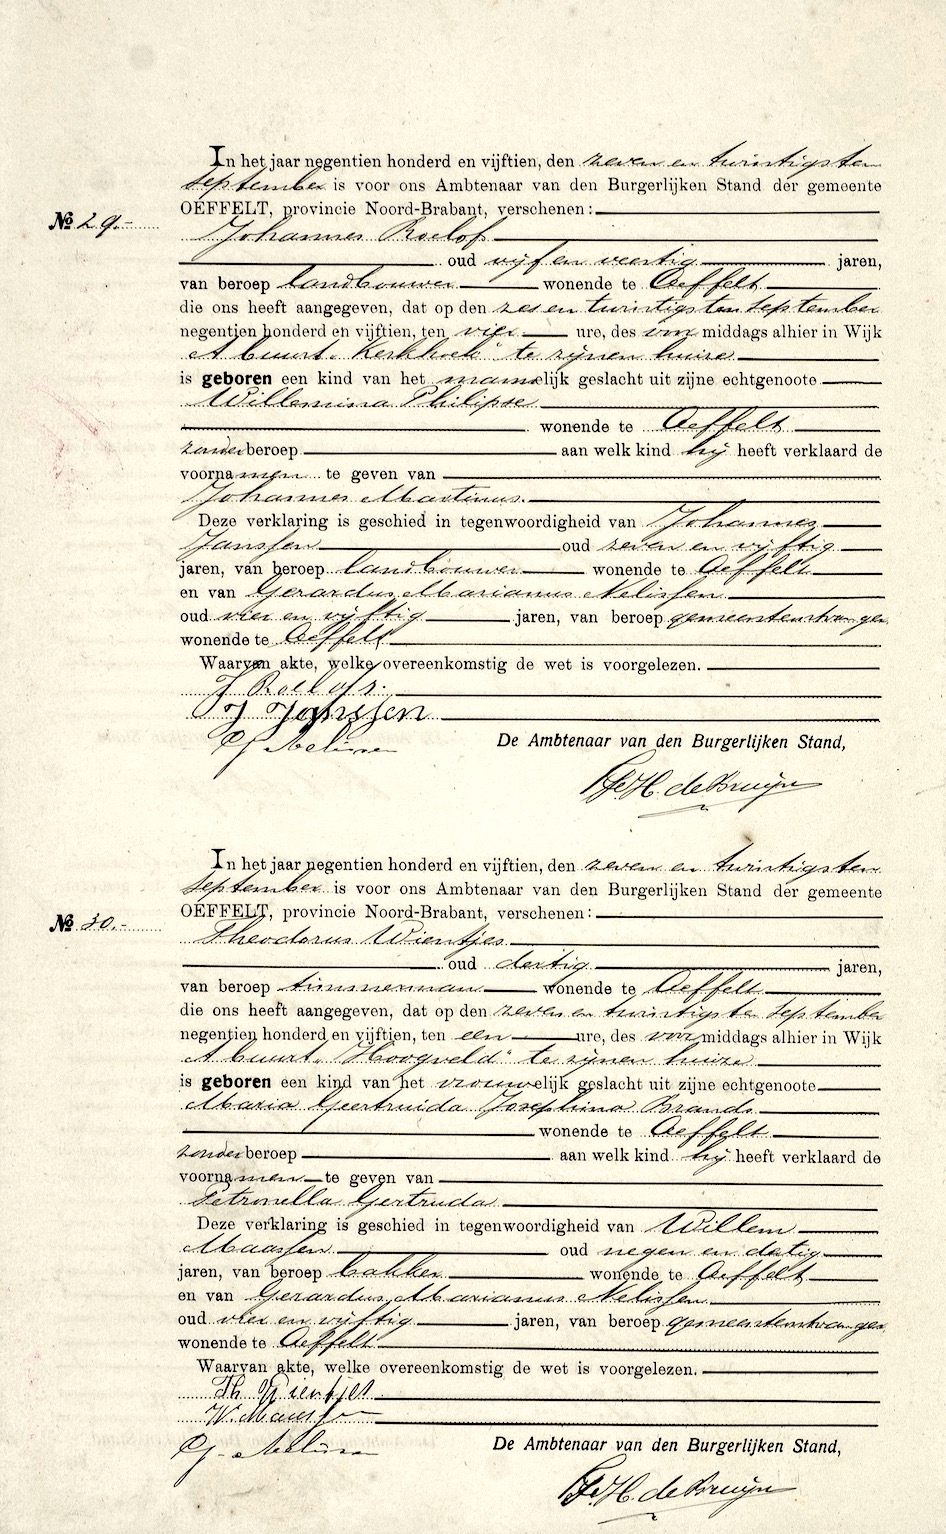 In het jaar negentien honderd en vijftien, den zeven en twintigsten
September is voor ons Ambtenaar van den Burgerlijken Stand der gemeente
OEFFELT, provincie Noord-Brabant, verschenen:
No 29.-
Johannes Roelofs
oud vijf en veertig jaren,
van beroep landbouwer wonende te Oeffelt
die ons heeft aangegeven, dat op den zes en twintigsten September
negentien honderd en vijftien, ten vier ure, des voormiddags alhier in Wijk
A buurt "Kerkhoek" te zijnen huize
is geboren een kind van het mannelijk geslacht uit zijne echtgenoote
Willemina Philipse
wonende te Oeffelt
zonder beroep aan welk kind hij heeft verklaard de
voornamen te geven van
Johannes Martinus.
Deze verklaring is geschied in tegenwoordigheid van Johannes
Janssen oud zeven en vijftig
jaren, van beroep landbouwer wonende te Oeffelt
en van Gerardus Marianus Nelissen
oud vier en vijftig jaren, van beroep gemeenteontvanger
wonende te Oeffelt
Waarvan akte, welke overeenkomstig de wet is voorgelezen.
J Roelofs.
J Janssen
G Nelissen
De Ambtenaar van den Burgerlijken Stand,
H. de Bruijn
In het jaar negentien honderd en vijftien, den zeven en twintigsten
September is voor ons Ambtenaar van den Burgerlijken Stand der gemeente
OEFFELT, provincie Noord-Brabant, verschenen:
No 30.-
Theodorus Wientjes
oud dertig jaren,
van beroep timmerman wonende te Oeffelt
die ons heeft aangegeven, dat op den zeven en twintigsten September
negentien honderd en vijftien, ten een ure, des voormiddags alhier in Wijk
A buurt "Hoogveld" te zijnen huize
is geboren een kind van het vrouwelijk geslacht uit zijne echtgenoote
Maria Geertruida Josephina Brands
wonende te Oeffelt
zonder beroep aan welk kind hij heeft verklaard de
voornamen te geven van
Petronella Gertruda
Deze verklaring is geschied in tegenwoordigheid van Willem
Maassen oud negen en dertig
jaren, van beroep bakker wonende te Oeffelt
en van Gerardus Marianus Nelissen
oud vier en vijftig jaren, van beroep gemeenteontvanger
wonende te Oeffelt
Waarvan akte, welke overeenkomstig de wet is voorgelezen.
Th Wientjes
W. Maassen
G. Nelissen
De Ambtenaar van den Burgerlijken Stand,
H. de Bruijn